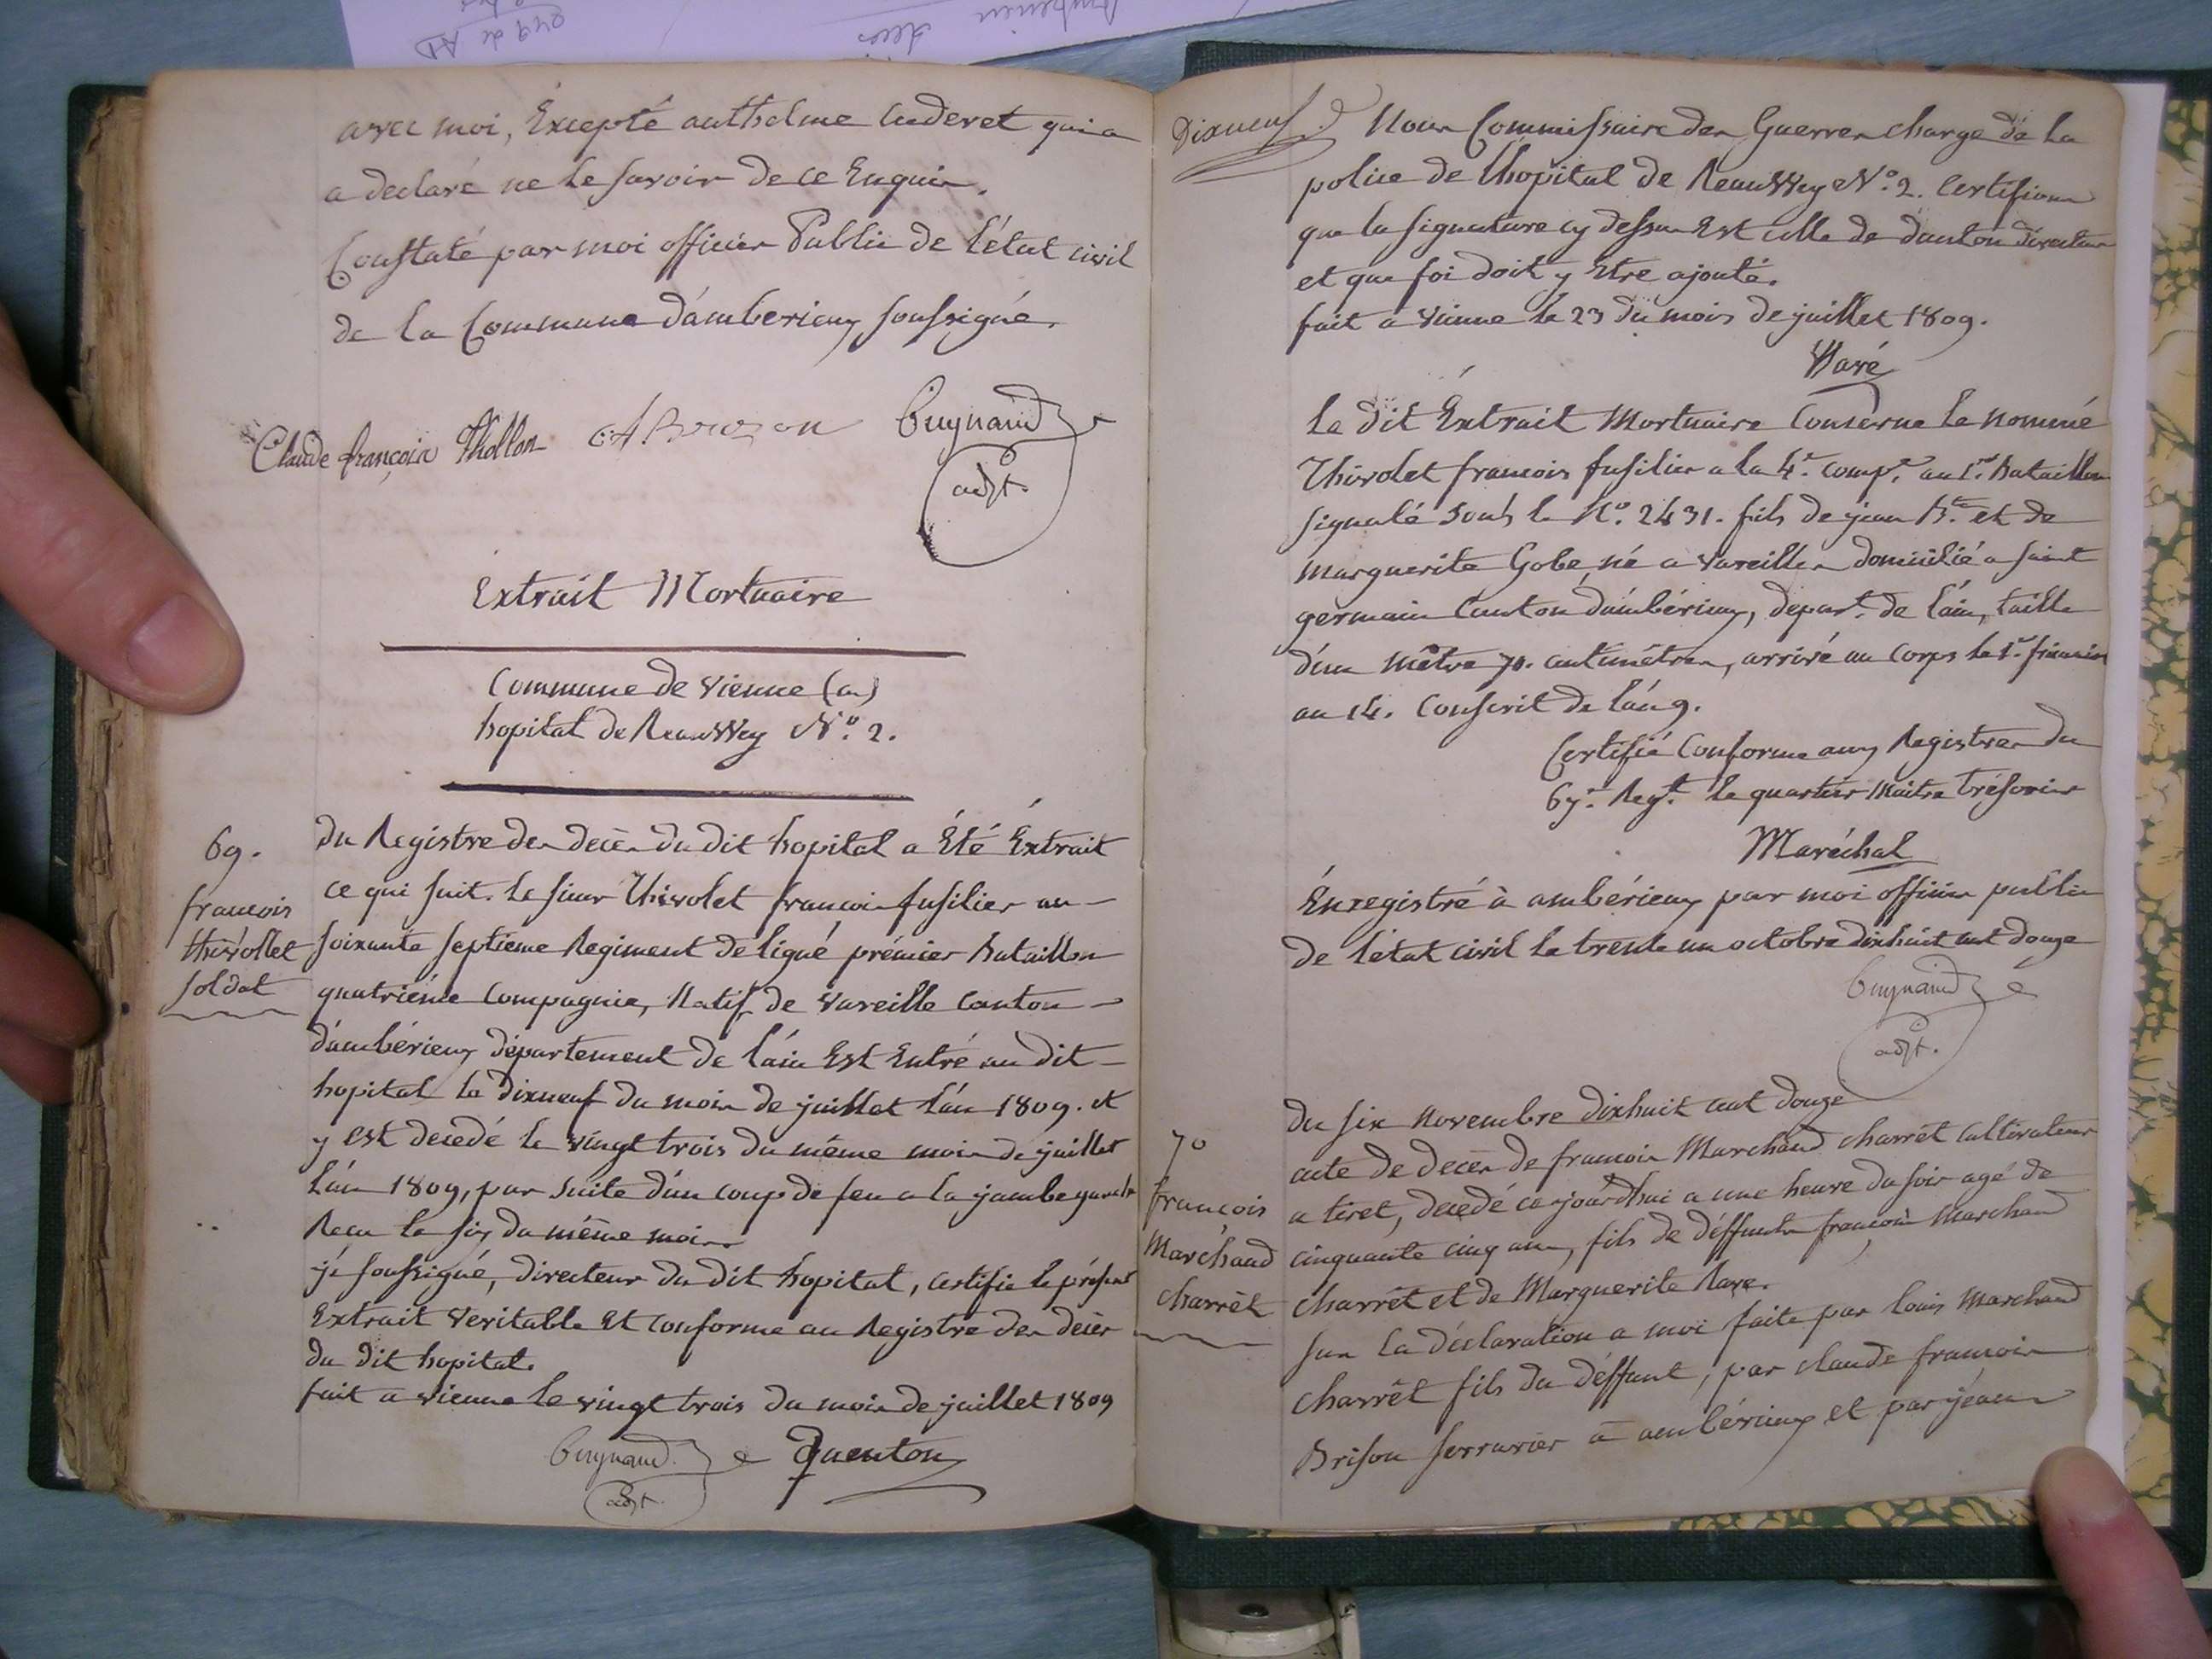 avec moi, Excepté anthelme Cuderet qui a
a declaré ne le savoir de ce Enquis.
Constaté par moi officier Public de l'état civil
de la Commune d'amberieux soussigné.
Claude françois Thollon Buynand
adjt.
Extrait Mortuaire
Commune de Vienne (en)
hopital de N°. 2.
69.
françois
thévollet
soldat
du Registre des decès du dit hopital a Eté Extrait
ce qui suit. le sieur Thévolet francois fusilier au
soixante septieme Regiment de ligne prémier Bataillon
quatriéme Compagnie, Natif de Vareille Canton
d'ambérieux département de l'ain Est Entré au dit
hopital le dixneuf du mois de juillet l'an 1809. et
y est decedé le vingt trois du même mois de juillet
l'an 1809, par suite d'un coup de feu a la jambe gauche
Recu le six du même mois
je soussigné, directeur du dit hopital, certifie le présent
Extrait veritable Et conforme au Registre des décès
du dit hopital.
fait a vienne le vingt trois du mois de juillet 1809
Buynand Quenton
adjt.
Dixneuf.
Nous Commissaire des Guerres charge de la
police de l'hopital de N°. 2. Certifions
que la signature cy dessus Est celle de directeur
et que foi doit y Etre ajouté.
fait a vienne le 23 du mois de juillet 1809.
Varé
le dit Extrait Mortuaire Conserne le nommé
Thévolet francois fusilier a la 4e. compe. au 1er. Bataillon
signalé sous le No. 2431. fils de jean Bte. et de
Marguerite Gobe, né a Vareilles domicilié a saint
germain Canton d'ambérieux, depart. de l'ain, taille
d'un mêtre 70. centimêtres, arrivé au Corps le 1er. frimaire
an 14. Conscrit de l'an 9.
Certifié Conforme aux Registres du
67e. Regt. le quartier Maitre trésorier
Maréchal
Enregistré à ambérieux par moi officier public
de l'état civil le trente un octobre dixhuit cent douze
Buynand
adjt.
70
françois
Marchand
charrèt
du six Novembre dixhuit cent douze
acte de decès de francois Marchand charrèt Cultivateur
a tiret, decedé ce jourdhui a une heure du soir agé de
cinquante cinq ans, fils de déffunts françois Marchand
charrèt et de Marguerite Rave.
sur la déclaration a moi faite par louis Marchand
charrèt fils du déffunt, par claude francois
Brison serrurier à ambérieux et par jean